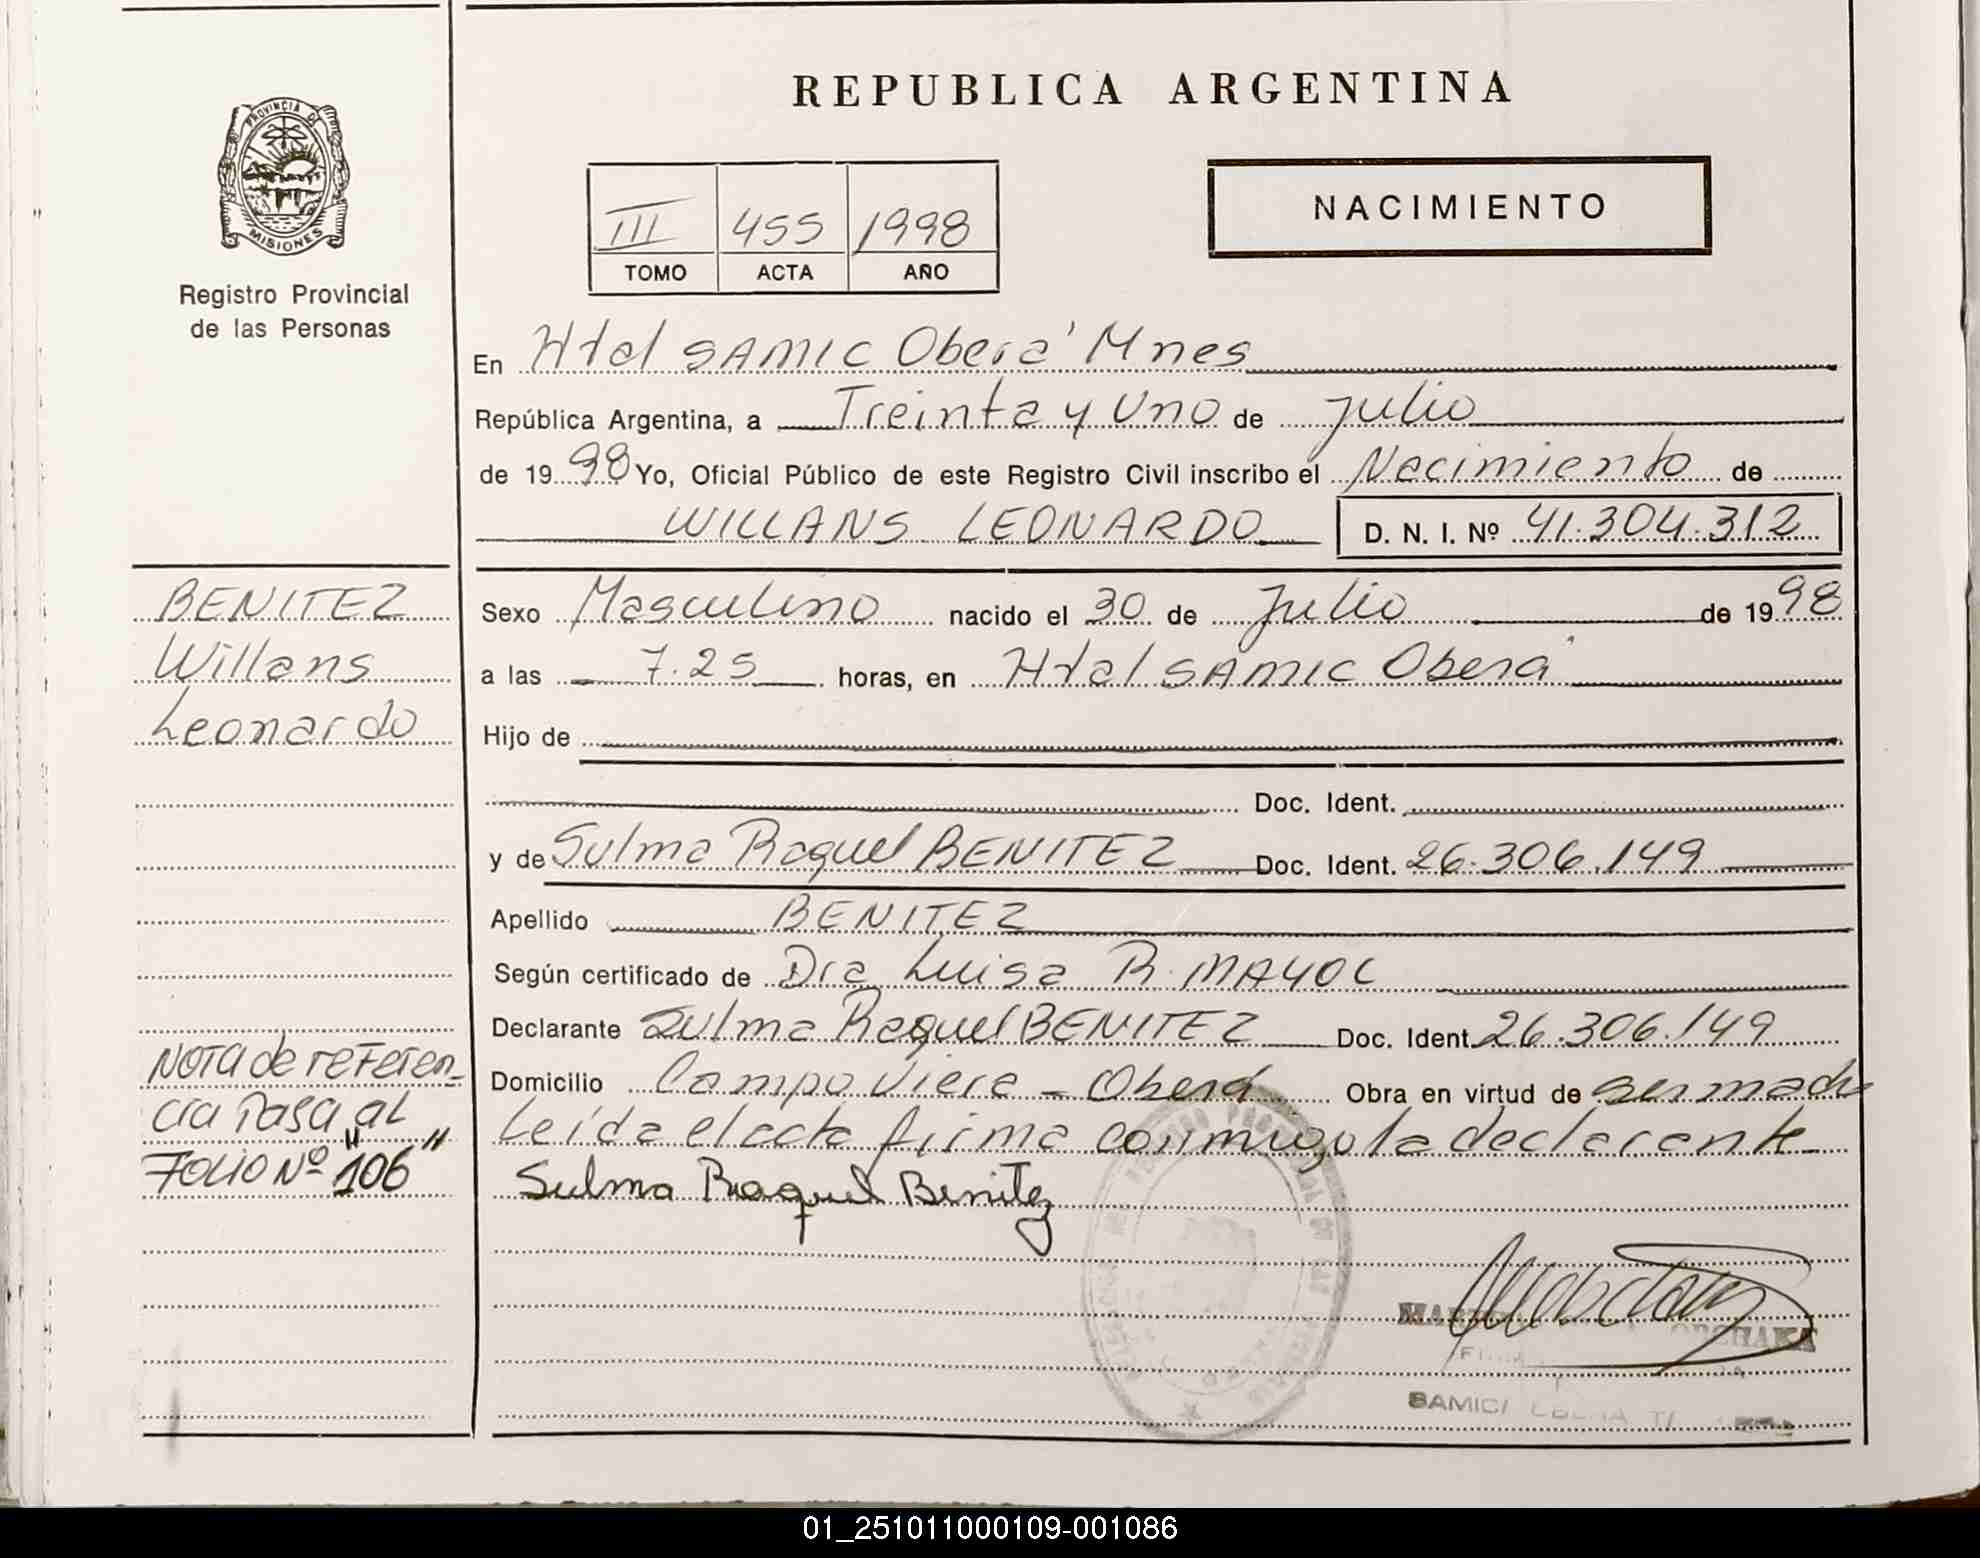 REPUBLICA ARGENTINA
PROVINCIA DE
MISIONES
Registro Provincial
de las Personas
III 455 1998
TOMO ACTA AÑO
NACIMIENTO
En Htal SAMIC Oberá Mnes
República Argentina, a Treinta y Uno de julio
de 1998 Yo, Oficial Público de este Registro Civil inscribo el Nacimiento de
WILLANS LEONARDO D. N. I. Nº 41.304.312
BENITEZ
Willans
Leonardo
Sexo Masculino nacido el 30 de Julio de 1998
a las 7.25 horas, en Htal SAMIC Oberá
Hijo de
Doc. Ident.
y de Sulma Raquel BENITEZ Doc. Ident. 26.306.149
Apellido BENITEZ
Según certificado de Dra Luisa R. MAYOL
Declarante Sulma Raquel BENITEZ Doc. Ident. 26.306.149
Domicilio Campo Viera - Oberá Obra en virtud de ser madre
Leída el acta firma conmigo la declarante
Sulma Raquel Benitez
NOTA de reFeren-
cia Pasa al
FOLIO Nº "106"
SAMIC
01_251011000109-001086